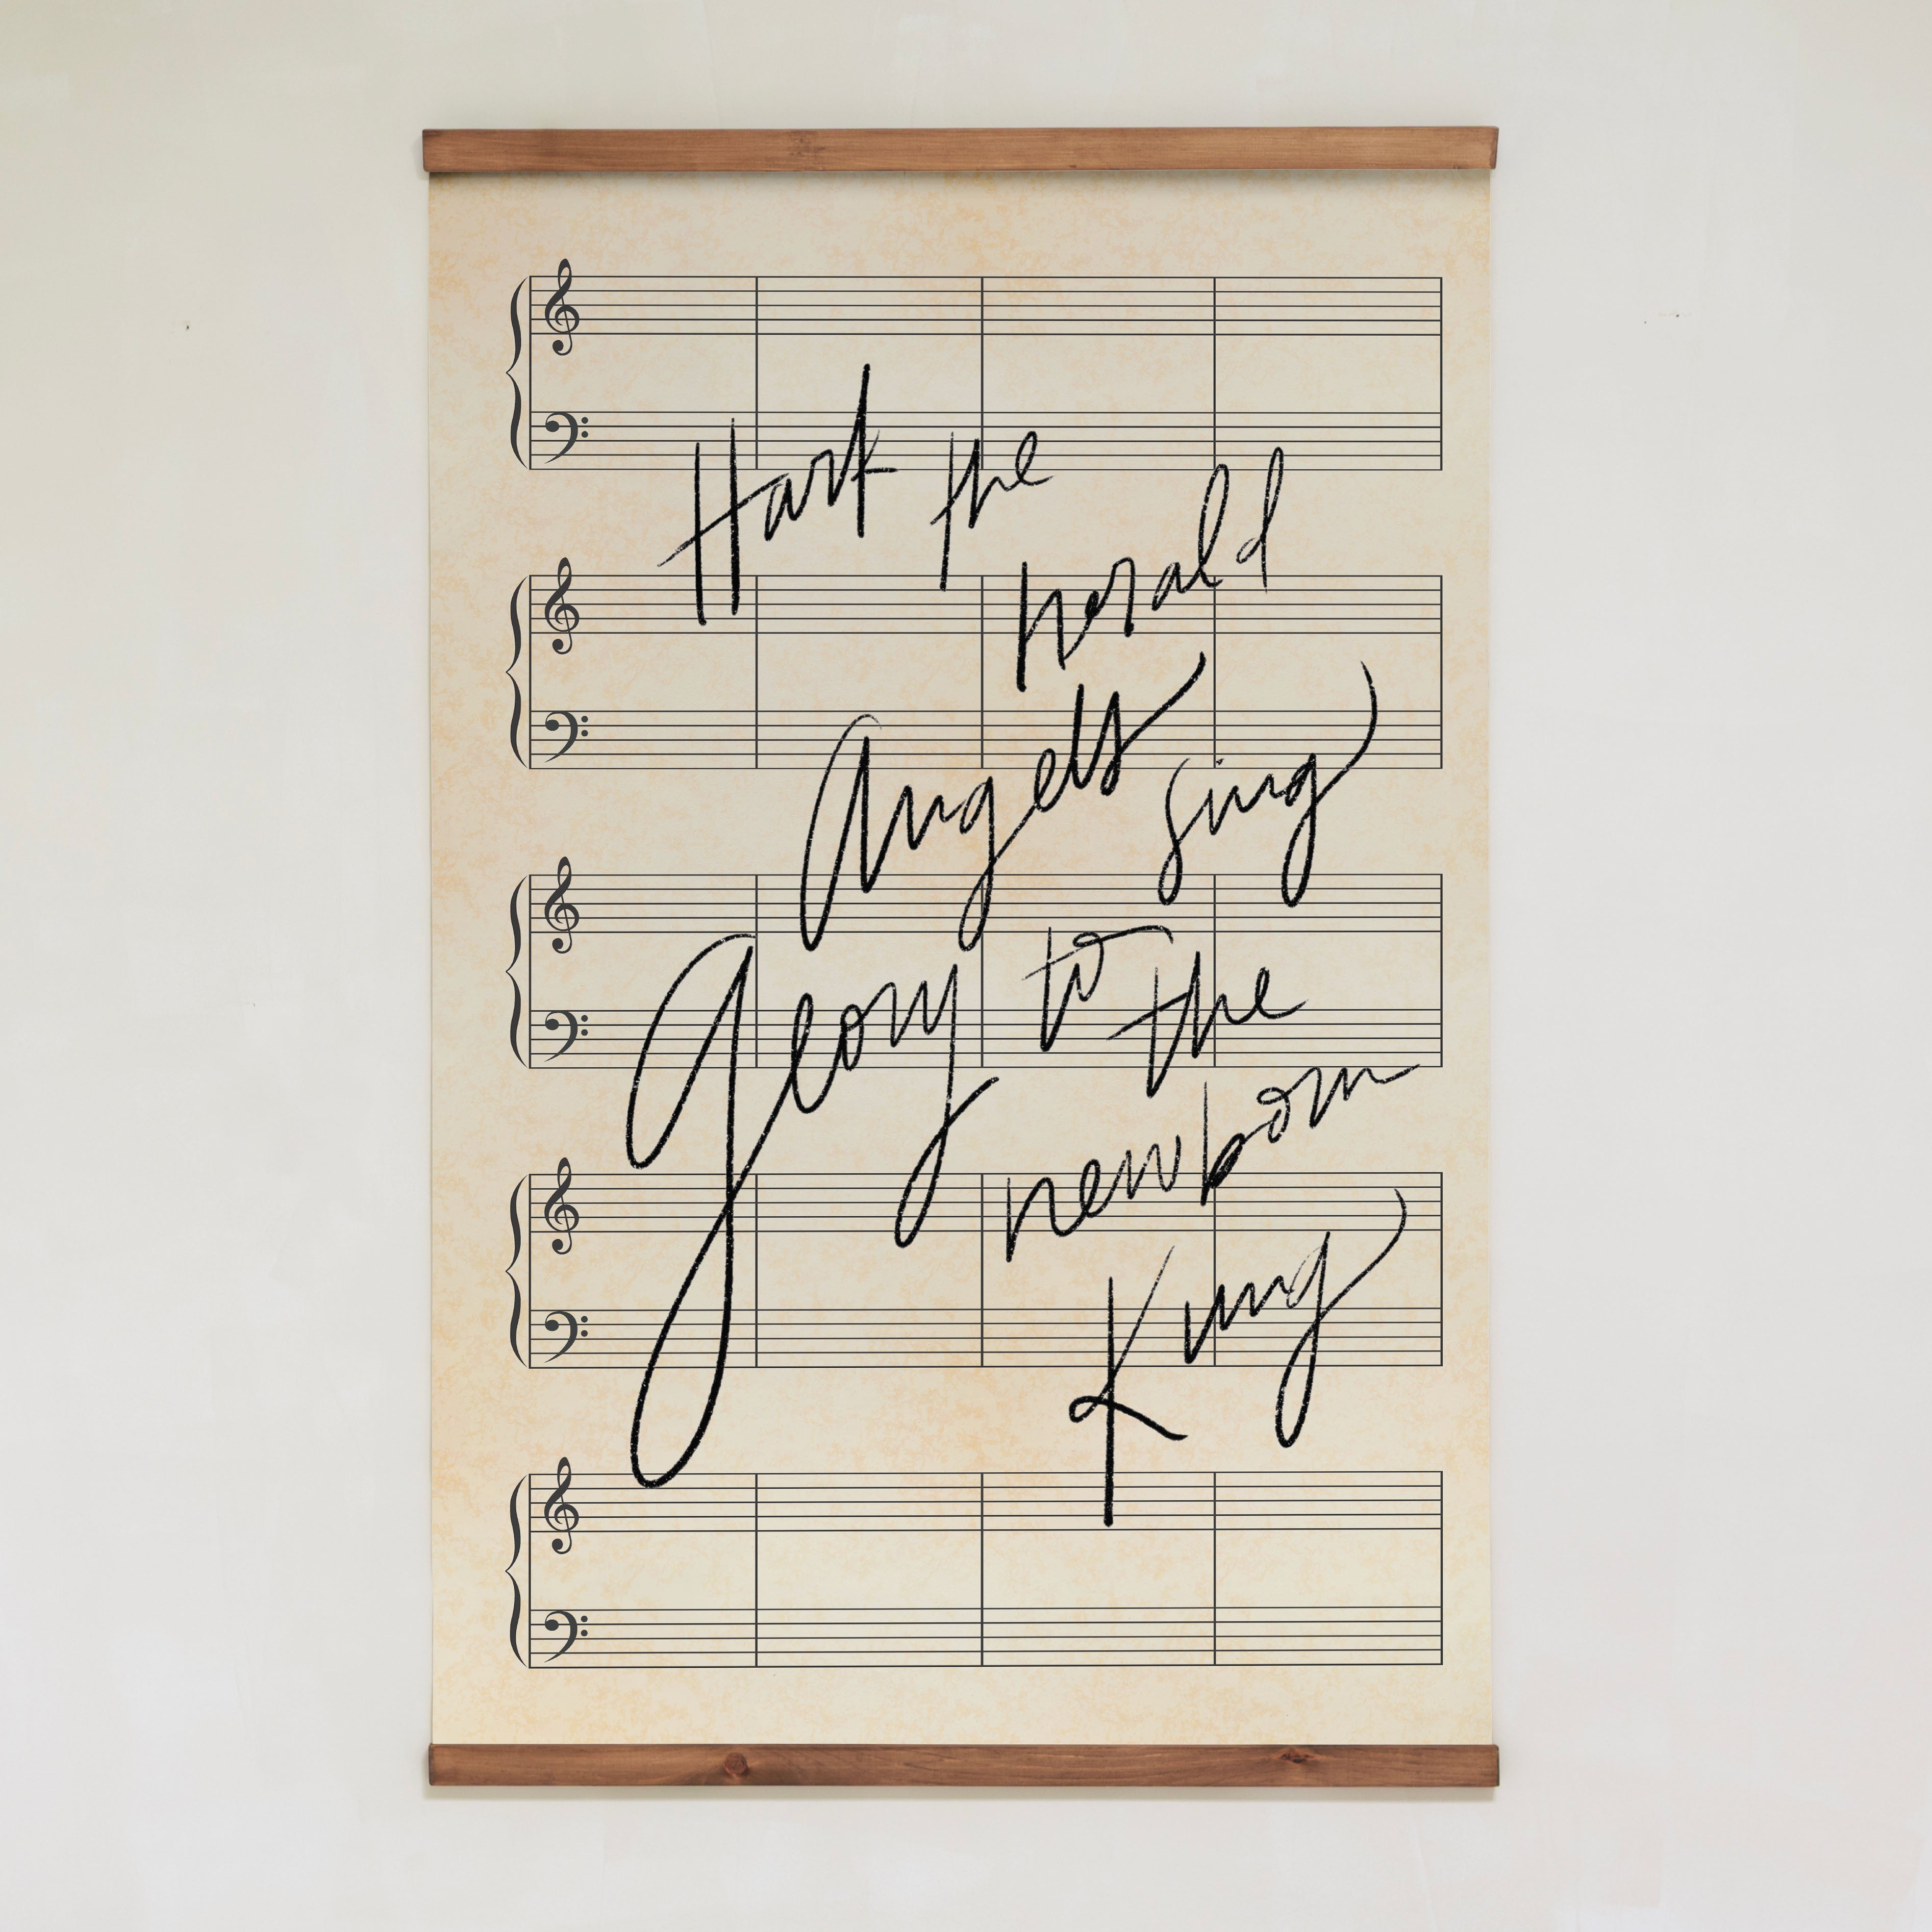 Hark the
herald
Angels sing
Glory to the
newborn
King